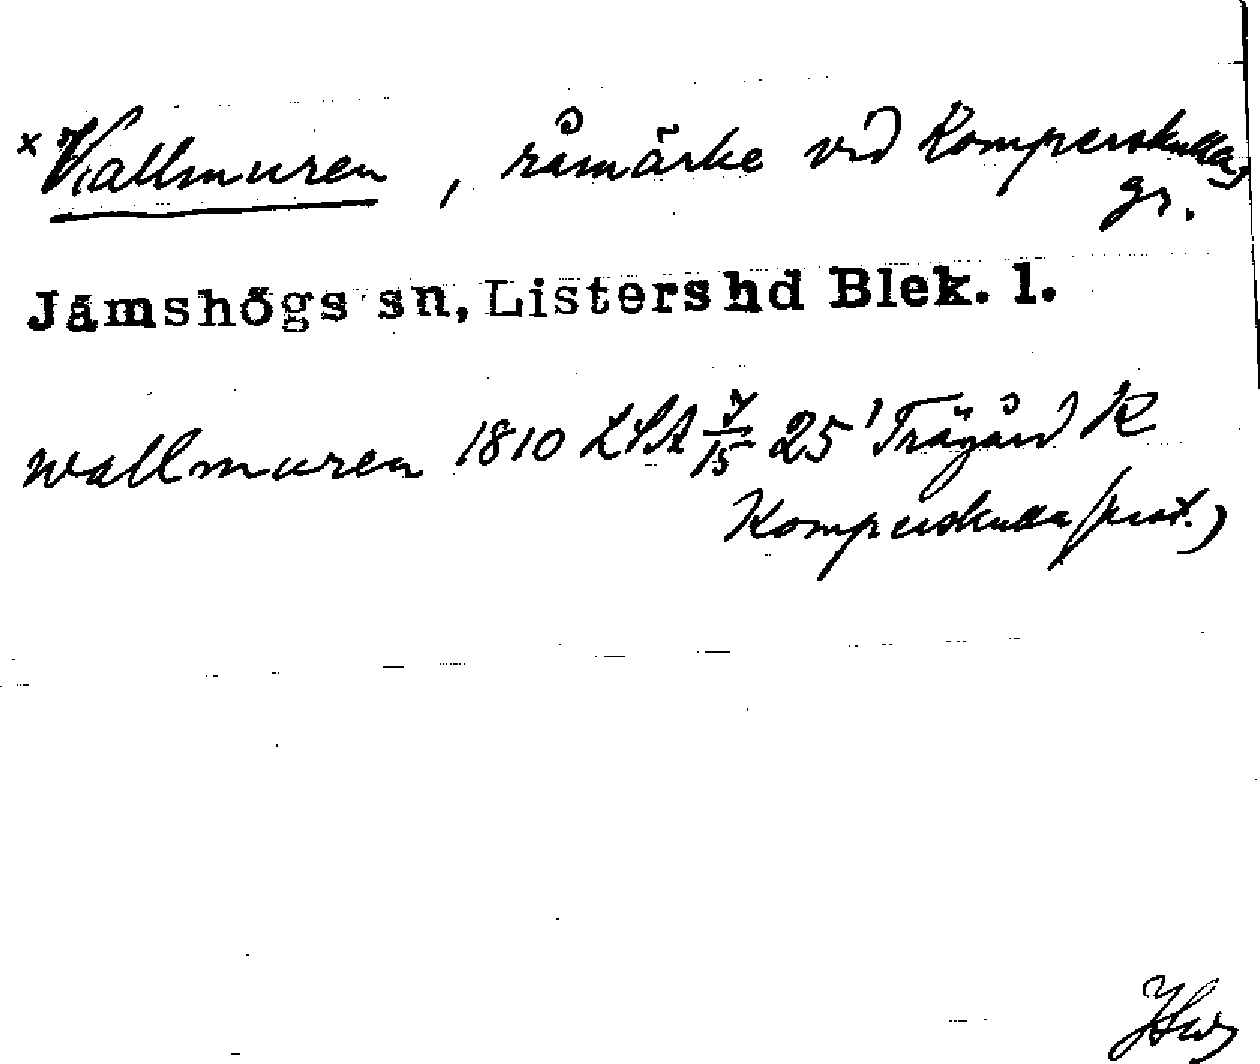 × Vallmuren, råmärke vid Komperskulla,
gr.
Jämshögs sn, Listers hd Blek. l.
wallmuren 1810 LSA 7/15 25' Trägård R
Komperskulla (prot.)